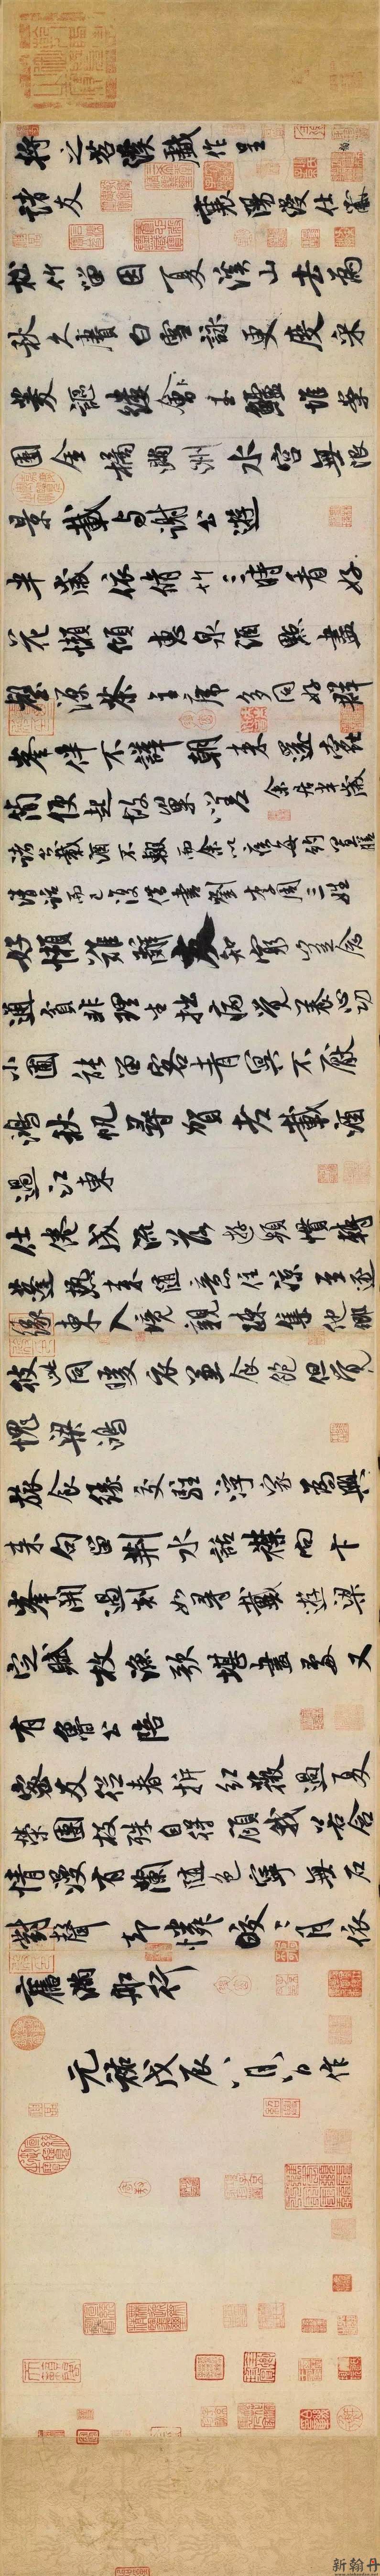 將之苕溪戲作呈
諸友 襄陽漫仕黻
松竹留因夏溪山去為
秋久賡白雪詠更度采
菱謳縷會玉鱸堆案
團金橘滿洲水宮無限
景載與謝公遊
半歲依脩竹三時看好
花懶傾惠泉酒點盡
壑源茶主席多同好群
峯伴不譁朝來還蠹
簡便起故巢嗟 余居半歲
諸公載酒不輟而余以疾每約置膳
清話而已復借書劉李周三姓
好懶難辭友知窮豈念
通貧非理生拙病覺養心功
小圃能留客青冥不厭
鴻秋帆尋賀老載酒
過江東
仕倦成流落遊頻慣轉
蓬熱來隨意住涼至逐
緣東入境親疎集他鄉
彼此同暖衣兼食飽但覺
愧梁鴻
旅食緣交駐浮家為興
來句留荊水話襟向卞
峯開過剡如尋戴遊梁
定賦枚漁歌堪畫處又
有魯公陪
密友從春拆紅薇過夏
榮團枝殊自得顧我若含
情漫有蘭隨色寧無石
對聲却憐皎皎月依
舊滿船行
元祐戊辰八月八日作
新翰